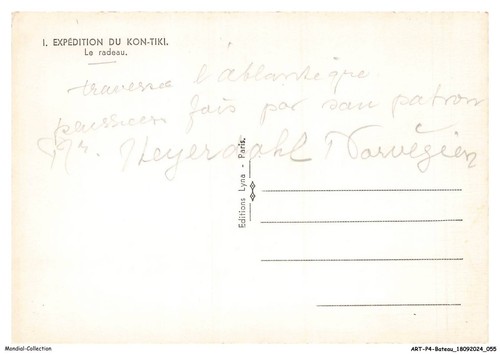 1. EXPÉDITION DU KON-TIKI.
Le radeau.
traverse l'atlantique
fois par son patron
Mr. Heyerdahl Norvégien
Editions Lyna - Paris.
Mondial-Collection
ART-P4-Bateau_18092024_055